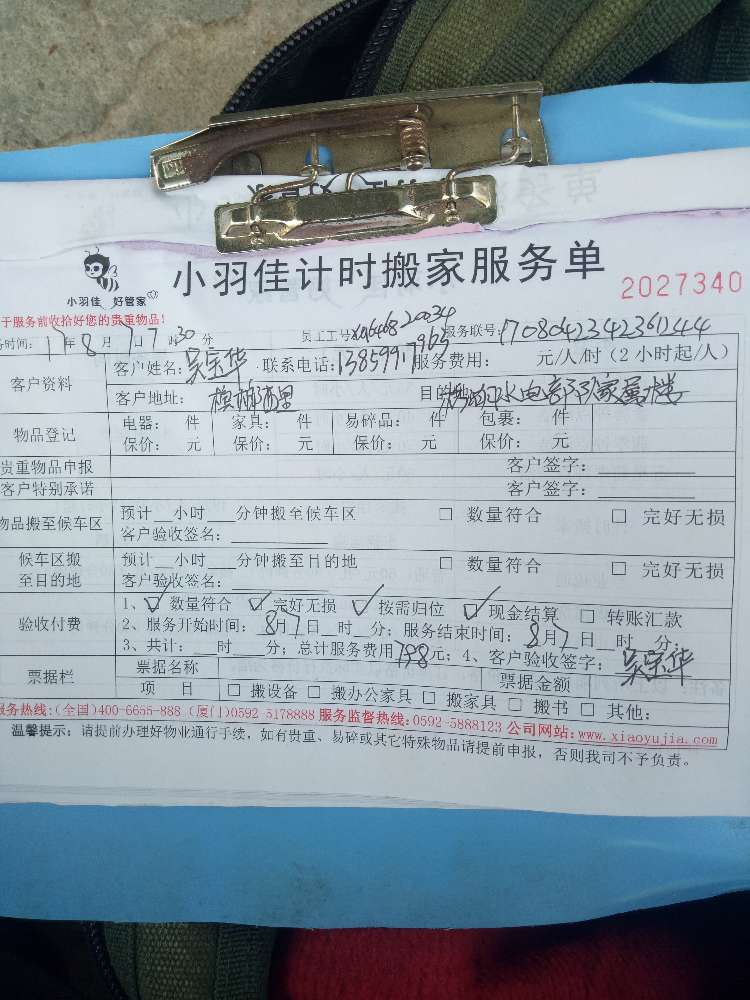 小羽佳 好管家
小羽佳计时搬家服务单
2027340
于服务前收拾好您的贵重物品!
务时间: 17年8月7日7时30分 员工工号 服务联号:
客户资料
客户姓名: 吴宗华 联系电话: 服务费用: 元/人/时(2小时起/人)
客户地址: 目的地: 水电部队家属楼
物品登记
电器: 件 家具: 件 易碎品: 件 包裹: 件
保价: 元 保价: 元 保价: 元 保价: 元
贵重物品申报 客户签字:
客户特别承诺 客户签字:
物品搬至候车区
预计__小时___分钟搬至候车区 □ 数量符合 □ 完好无损
客户验收签名:
候车区搬至目的地
预计__小时___分钟搬至目的地 □ 数量符合 □ 完好无损
客户验收签名:
验收付费
1、☑ 数量符合 ☑ 完好无损 ☑ 按需归位 ☑ 现金结算 □ 转账汇款
2、服务开始时间: 8月7日__时__分; 服务结束时间: 8月7日__时__分;
3、共计:___时___分; 总计服务费用798元; 4、客户验收签字: 吴宗华
票据栏
票据名称 票据金额
项 目 □ 搬设备 □ 搬办公家具 □ 搬家具 □ 搬书 □ 其他:
服务热线:(全国)400-6655-888 (厦门)0592-5178888 服务监督热线:0592-5888123 公司网站:www.xiaoyujia.com
温馨提示: 请提前办理好物业通行手续,如有贵重、易碎或其它特殊物品请提前申报,否则我司不予负责。